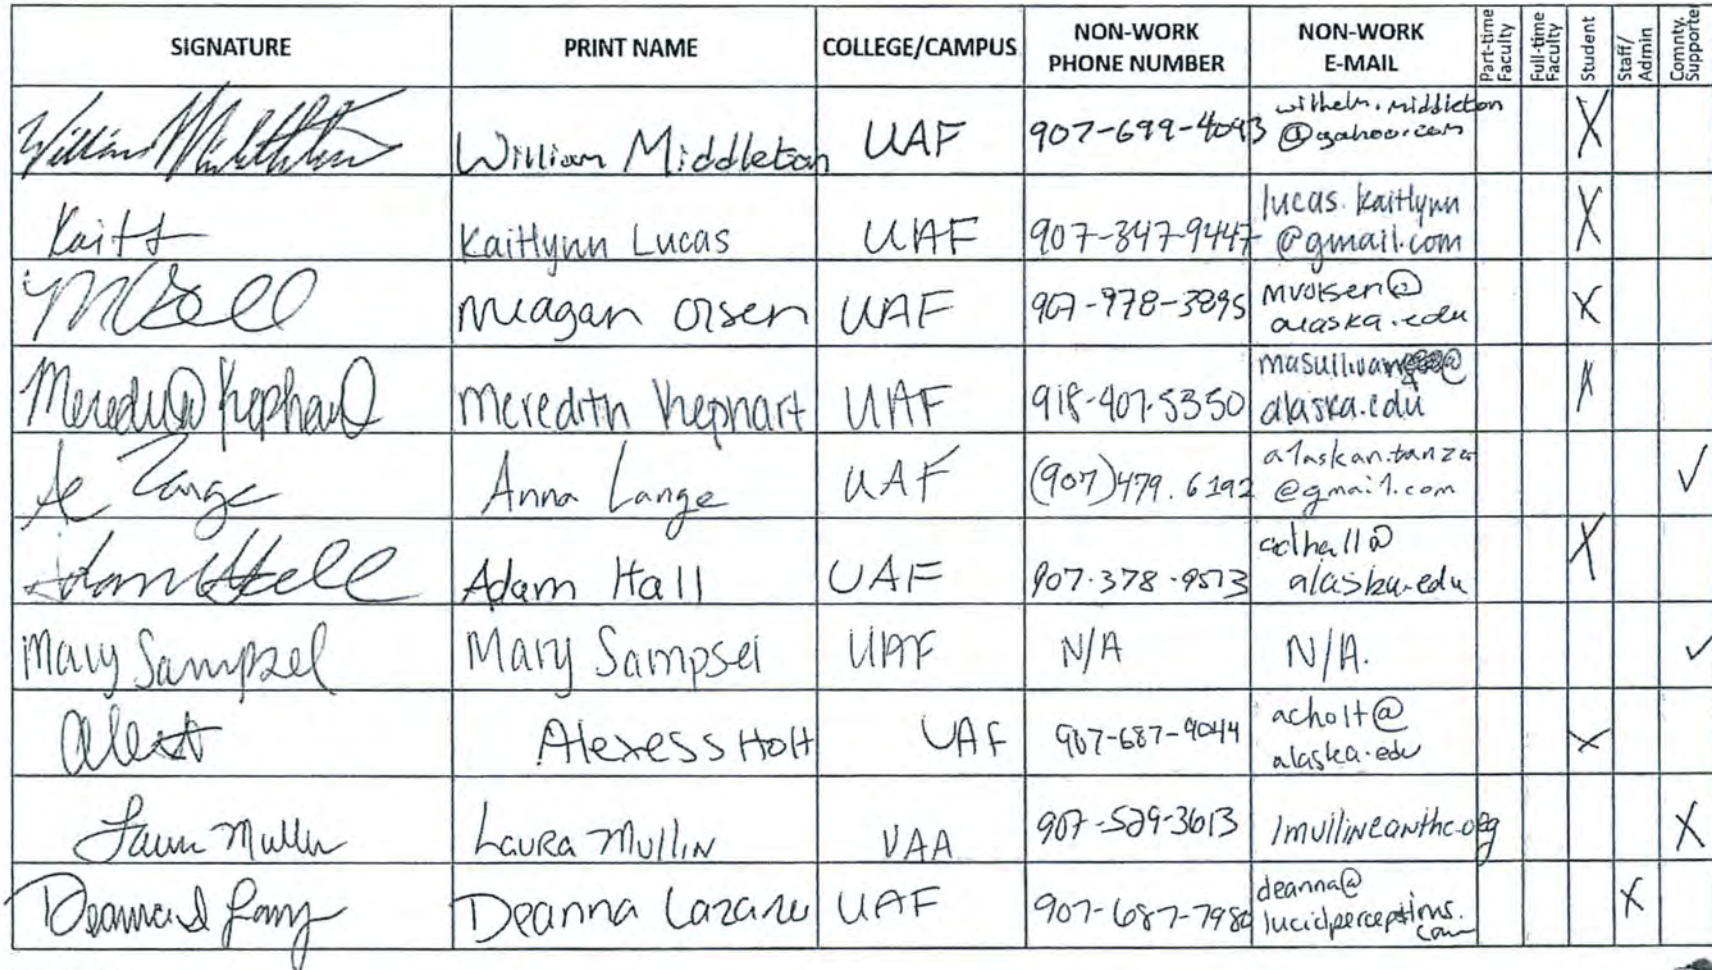 SIGNATURE PRINT NAME COLLEGE/CAMPUS NON-WORK PHONE NUMBER NON-WORK E-MAIL Part-time Faculty Full-time Faculty Student Staff/Admin Commty. Supporter
William Middleton William Middleton UAF 907-699-4093 wilhelm.middleton@yahoo.com X
Kaitlynn Lucas UAF 907-347-9447 lucas.kaitlynn@gmail.com X
Meagan Olsen UAF 907-978-3895 mvolsen@alaska.edu X
Meredith Kephart Meredith Kephart UAF 918-407-5350 masullivan@alaska.edu X
A Lange Anna Lange UAF (907)479.6192 alaskan.tanza@gmail.com ✓
Adam Hall Adam Hall UAF 907-378-9573 adhall@alaska.edu X
Mary Sampsel Mary Sampsel UAF N/A N/A. ✓
Alexess Holt UAF 907-687-9044 acholt@alaska.edu X
Laura Mullin UAA 907-529-3613 lmullin@anthc.org X
Deanna UAF 907-687-7980 deanna@lucidperceptions.com X